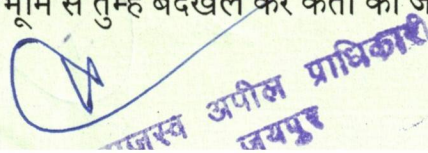 भूमि से तुम्हें बेदखल कर
राजस्व अपील प्राधिकारी
जयपुर